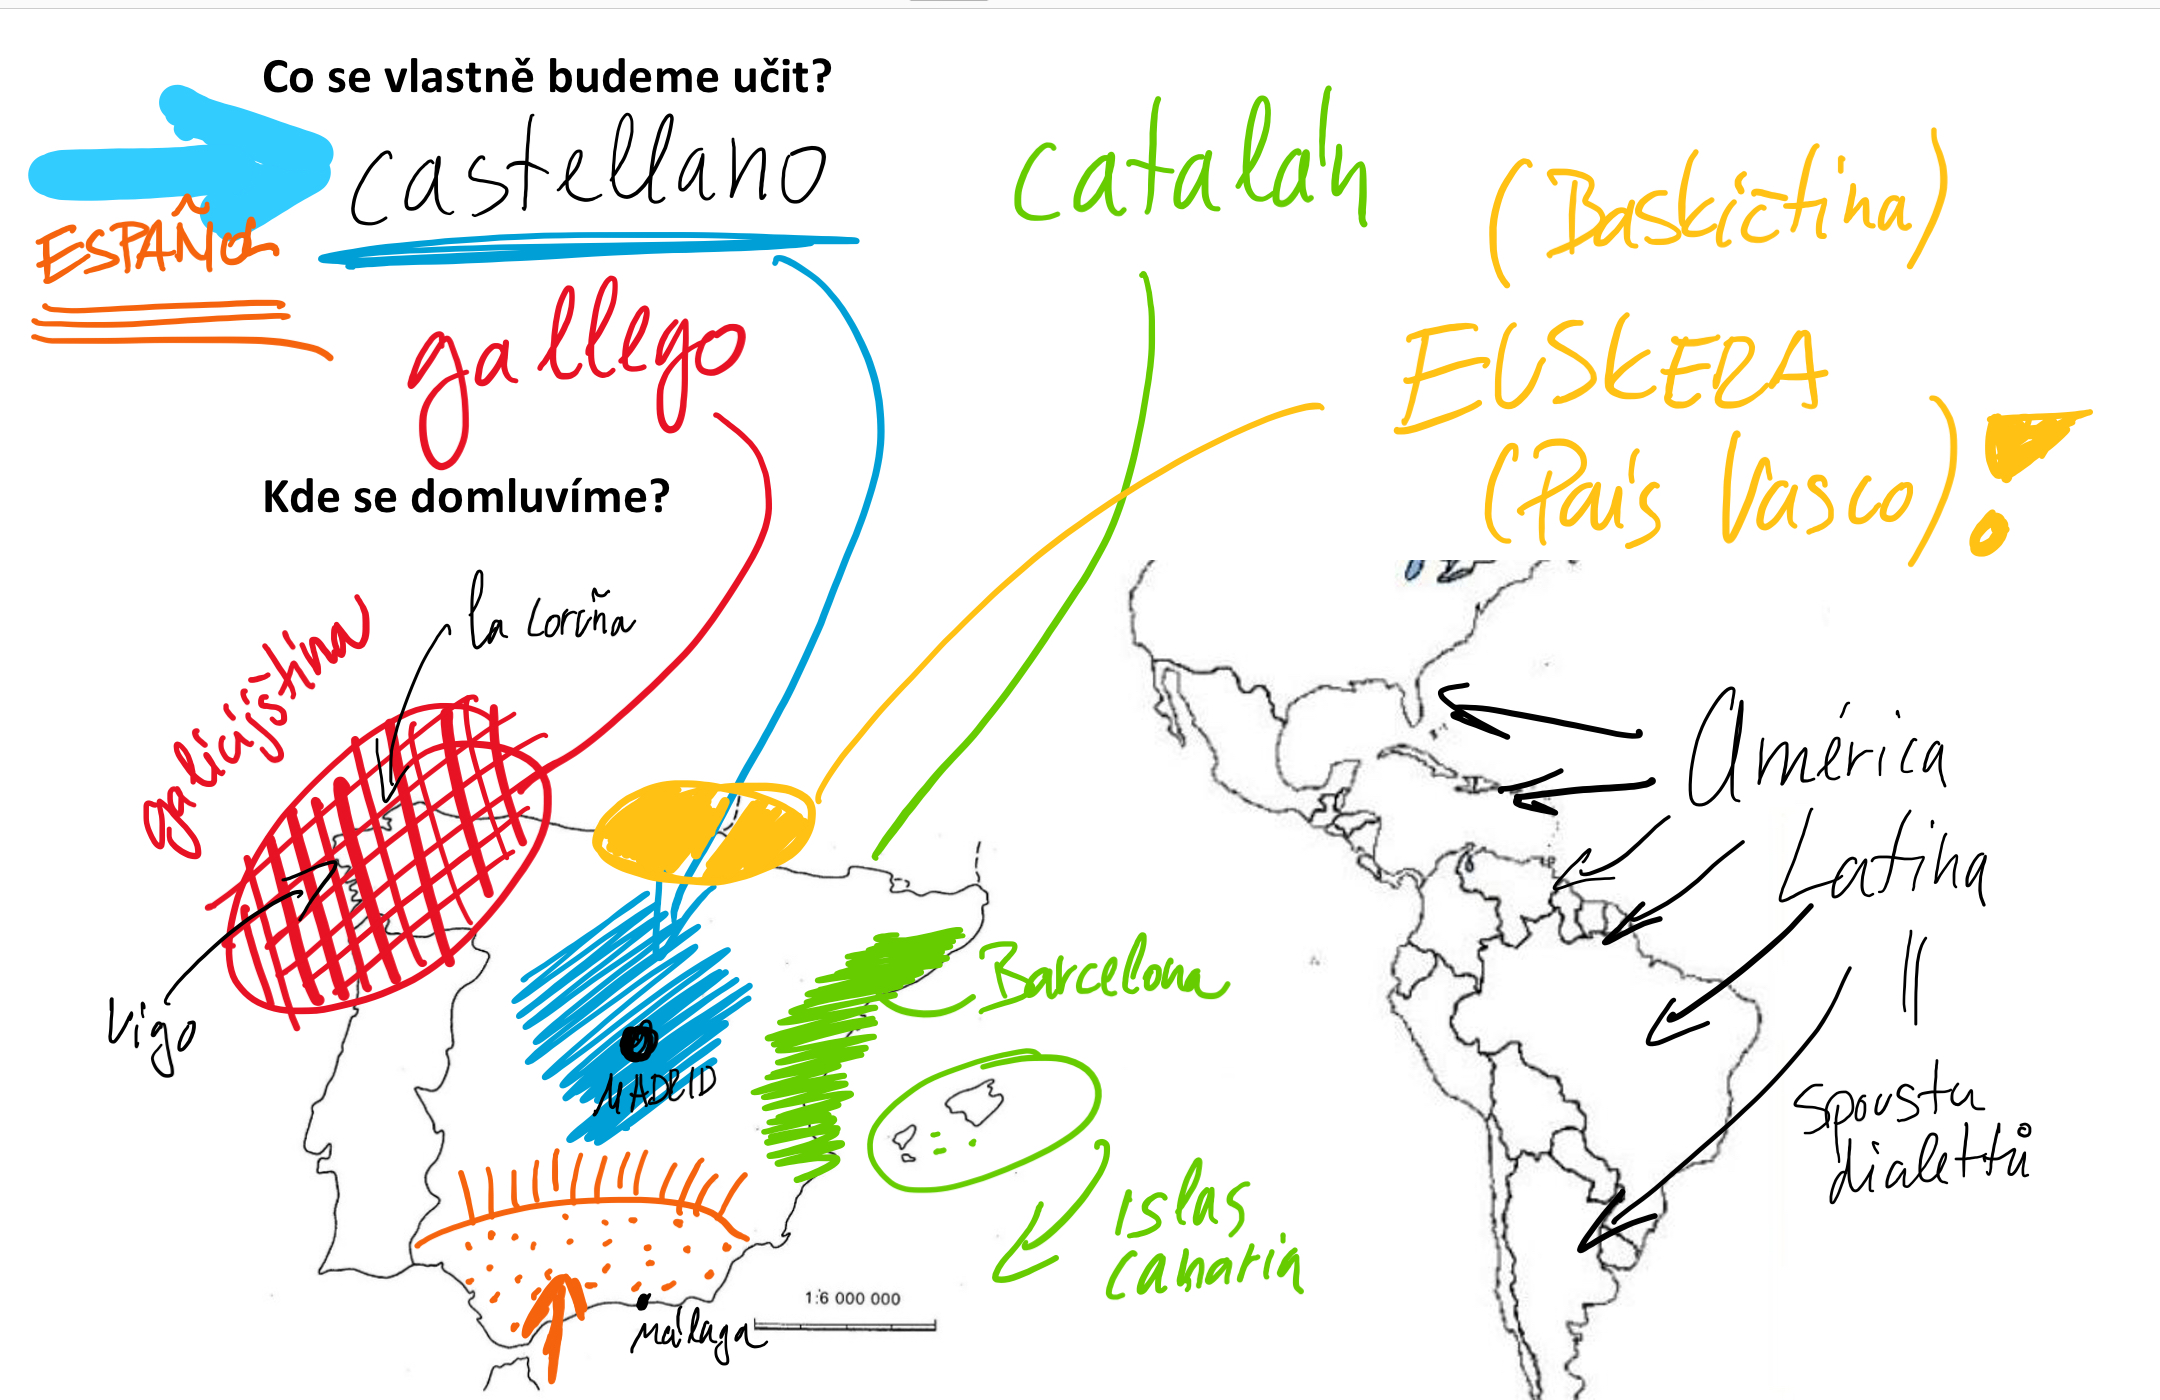 Co se vlastně budeme učit?
castellano
catalán
(Baskičtina)
ESPAÑOL
gallego
EUSKERA
(País Vasco)!
Kde se domluvíme?
la Coruña
galicijština
América
Latina
=
spoustu
dialettů
Barcelona
Vigo
MADRID
Islas
canaria
1:6 000 000
Málaga